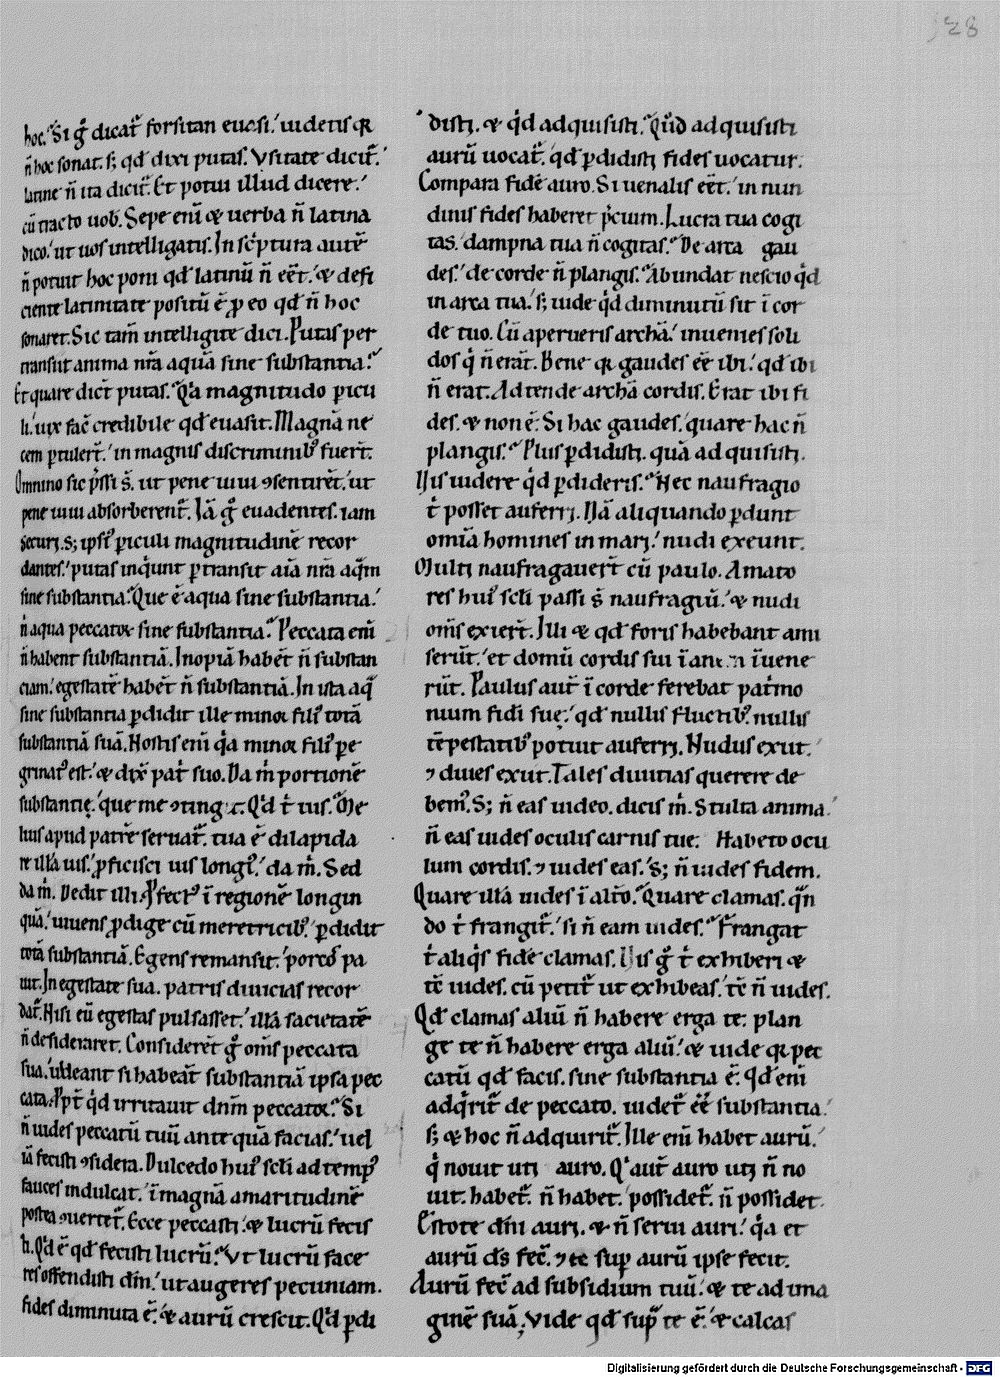 28
hoc. Si g̊ dicat̄ forsitan euasi. uidetis q̄
n̄ hoc sonat. s; qd̄ dixi putas. Vsitate dicit̄.
latine n̄ ita dicit̄. Et potui illud dicere.
cū tracto uob. Sepe enī & uerba n̄ latina
dico. ut uos intelligatis. In sc̄ptura autē
n̄ potuit hoc poni qd̄ latinū n̄ eēt. & defi
ciente latinitate positū ē p̱ eo qd̄ n̄ hoc
sonaret. Sic tam̄ intelligite dici. Putas per
transiit anima nr̄a aquā sine substantia.
Et quare dict̄ putas. Qa magnitudo p̱icu
li. uix fac̄ credibile qd̄ euasit. Magnā ne
cem p̱tulert̄. in magnis discriminib; fuert̄.
Omnino sic p̄ssi s̄. ut pene uiui ɔsentirēt. ut
pene uiui absorberent̄. Iā g̊ euadentes. iam
securi. s; ipsi᷒ p̱iculi magnitudinē recor
dantes. putas inq̇unt p̱transit aīa nr̄a aq̄m
sine substantia. Que ē aqua sine substantia.
n̄ aqua peccatoꝝ sine substantia. Peccata enī
n̄ habent substantiā. Inopiā habēt n̄ substan
ciam. egestatē habēt n̄ substantiā. In ista aq̄
sine substantia p̱didit ille minor fili᷒ totā
substantiā suā. Nostis enī q̇a minor fili᷒ pe
grinat᷒ est. & dix̄ pat̄ suo. Da m̄ portionē
substantię. que me ɔting. Qd̄ t̄ uis. Me
lius apud patrē seruat̄. tua ē dilapida
re illā uis. p̱ficisci uis longe᷒. da m̄. Sed
da m̄. Dedit illi. P̱fect᷒ ī regionē longin
quā. uiuens p̱dige cū meretricib;. p̱didit
totā substantiā. Egens remansit. porcos pa
uit. In egestate sua. patris diuicias recor
dat̄. Nisi eū egestas pulsasset. illā sacietatē
n̄ desideraret. Considerēt g̊ om̄s peccata
sua. uideant si habeāt substantiā ipsa pec
cata. Ppt̄ q̇d irritauit dn̄m peccatoꝝ. Si
n̄ uides peccatū tuū ante quā facias. uel
iā fecisti ɔsidera. Dulcedo hui᷒ scl̄i ad temp᷒
fauces indulcat. ī magnā amaritudinē
postea ɔuertet̄. Ecce peccasti. & lucrū fecis
ti. Qd̄ ē qd̄ fecisti lucrū. Vt lucrū face
res offendisti dm̄. ut augeres pecuniam.
fides diminuta ē. & aurū crescit. Qd̄ p̱di
disti. & q̇d adquisisti. Qd̄ adquisisti
aurū uocat̄. qd̄ p̱didisti fides uocatur.
Compara fidē auro. Si uenalis eēt. in nun
dinis fides haberet p̄cium. Lucra tua cogi
tas. dampna tua n̄ cogitas. De arca gau
des. de corde n̄ plangis. Abundat nescio q̇d
in arca tua. s; uide q̇d diminutū sit ī cor
de tuo. Cū aperueris archā. inuenies soli
dos q̇ n̄ erāt. Bene q̄ gaudes eē ibi. qd̄ ibi
n̄ erat. Adtende archā cordis. Erat ibi fi
des. & non ē. Si hac gaudes. quare hac n̄
plangis. Plus p̱didisti. quā adquisisti.
Vis uidere q̇d p̱dideris. Nec naufragio
t̄ posset auferri. Nā aliquando p̱dunt
omīa homines in mari. nudi exeunt.
Multi naufragauert̄ cū paulo. Amato
res hui᷒ scl̄i passi s̄ naufragiū. & nudi
om̄s exiert̄. Illi & qd̄ foris habebant ami
serūt. et domū cordis sui inanem īuene
rūt. Paulus aut̄ ī corde ferebat patm̄o
nium fidi suę. qd̄ nullis fluctib; nullis
tēpestatib; potuit auferri. Nudus exiit.
⁊ diues exiit. Tales diuitias querere de
bem᷒. S; n̄ eas uideo. dicis m̄. Stulta anima.
n̄ eas uides oculis carnis tue. Habeto ocu
lum cordis. ⁊ uides eas. S; n̄ uides fidem.
Quare illā uides ī alto. Quare clamas. qn̄
do t̄ frangit̄. si n̄ eam uides. Frangat
t̄ aliq̇s fidē clamas. Vis g̊ t̄ exhiberi &
tē uides. cū petit̄ ut exhibeas. tē n̄ uides.
Qd̄ clamas aliū n̄ habere erga te. plan
ge te n̄ habere erga aliū. & uide q̄ pec
catū qd̄ facis. sine substantia ē. qd̄ enī
adq̇rit̄ de peccato. uidet̄ eē substantia.
s; & hoc n̄ adquirit̄. Ille enī habet aurū.
q̇ nouit uti auro. Q̇ aut̄ auro uti n̄ no
uit. habet̄. n̄ habet. possidet̄. n̄ possidet.
Estote dn̄i auri. & n̄ serui auri. q̇a et
aurū ds̄ fec̄. ⁊ te sup̱ aurū ipse fecit.
Aurū fec̄ ad subsidium tuū. & te ad ima
ginē suā. Vide qd̄ sup̄ te ē. & calcas
Digitalisierung gefördert durch die Deutsche Forschungsgemeinschaft - DFG